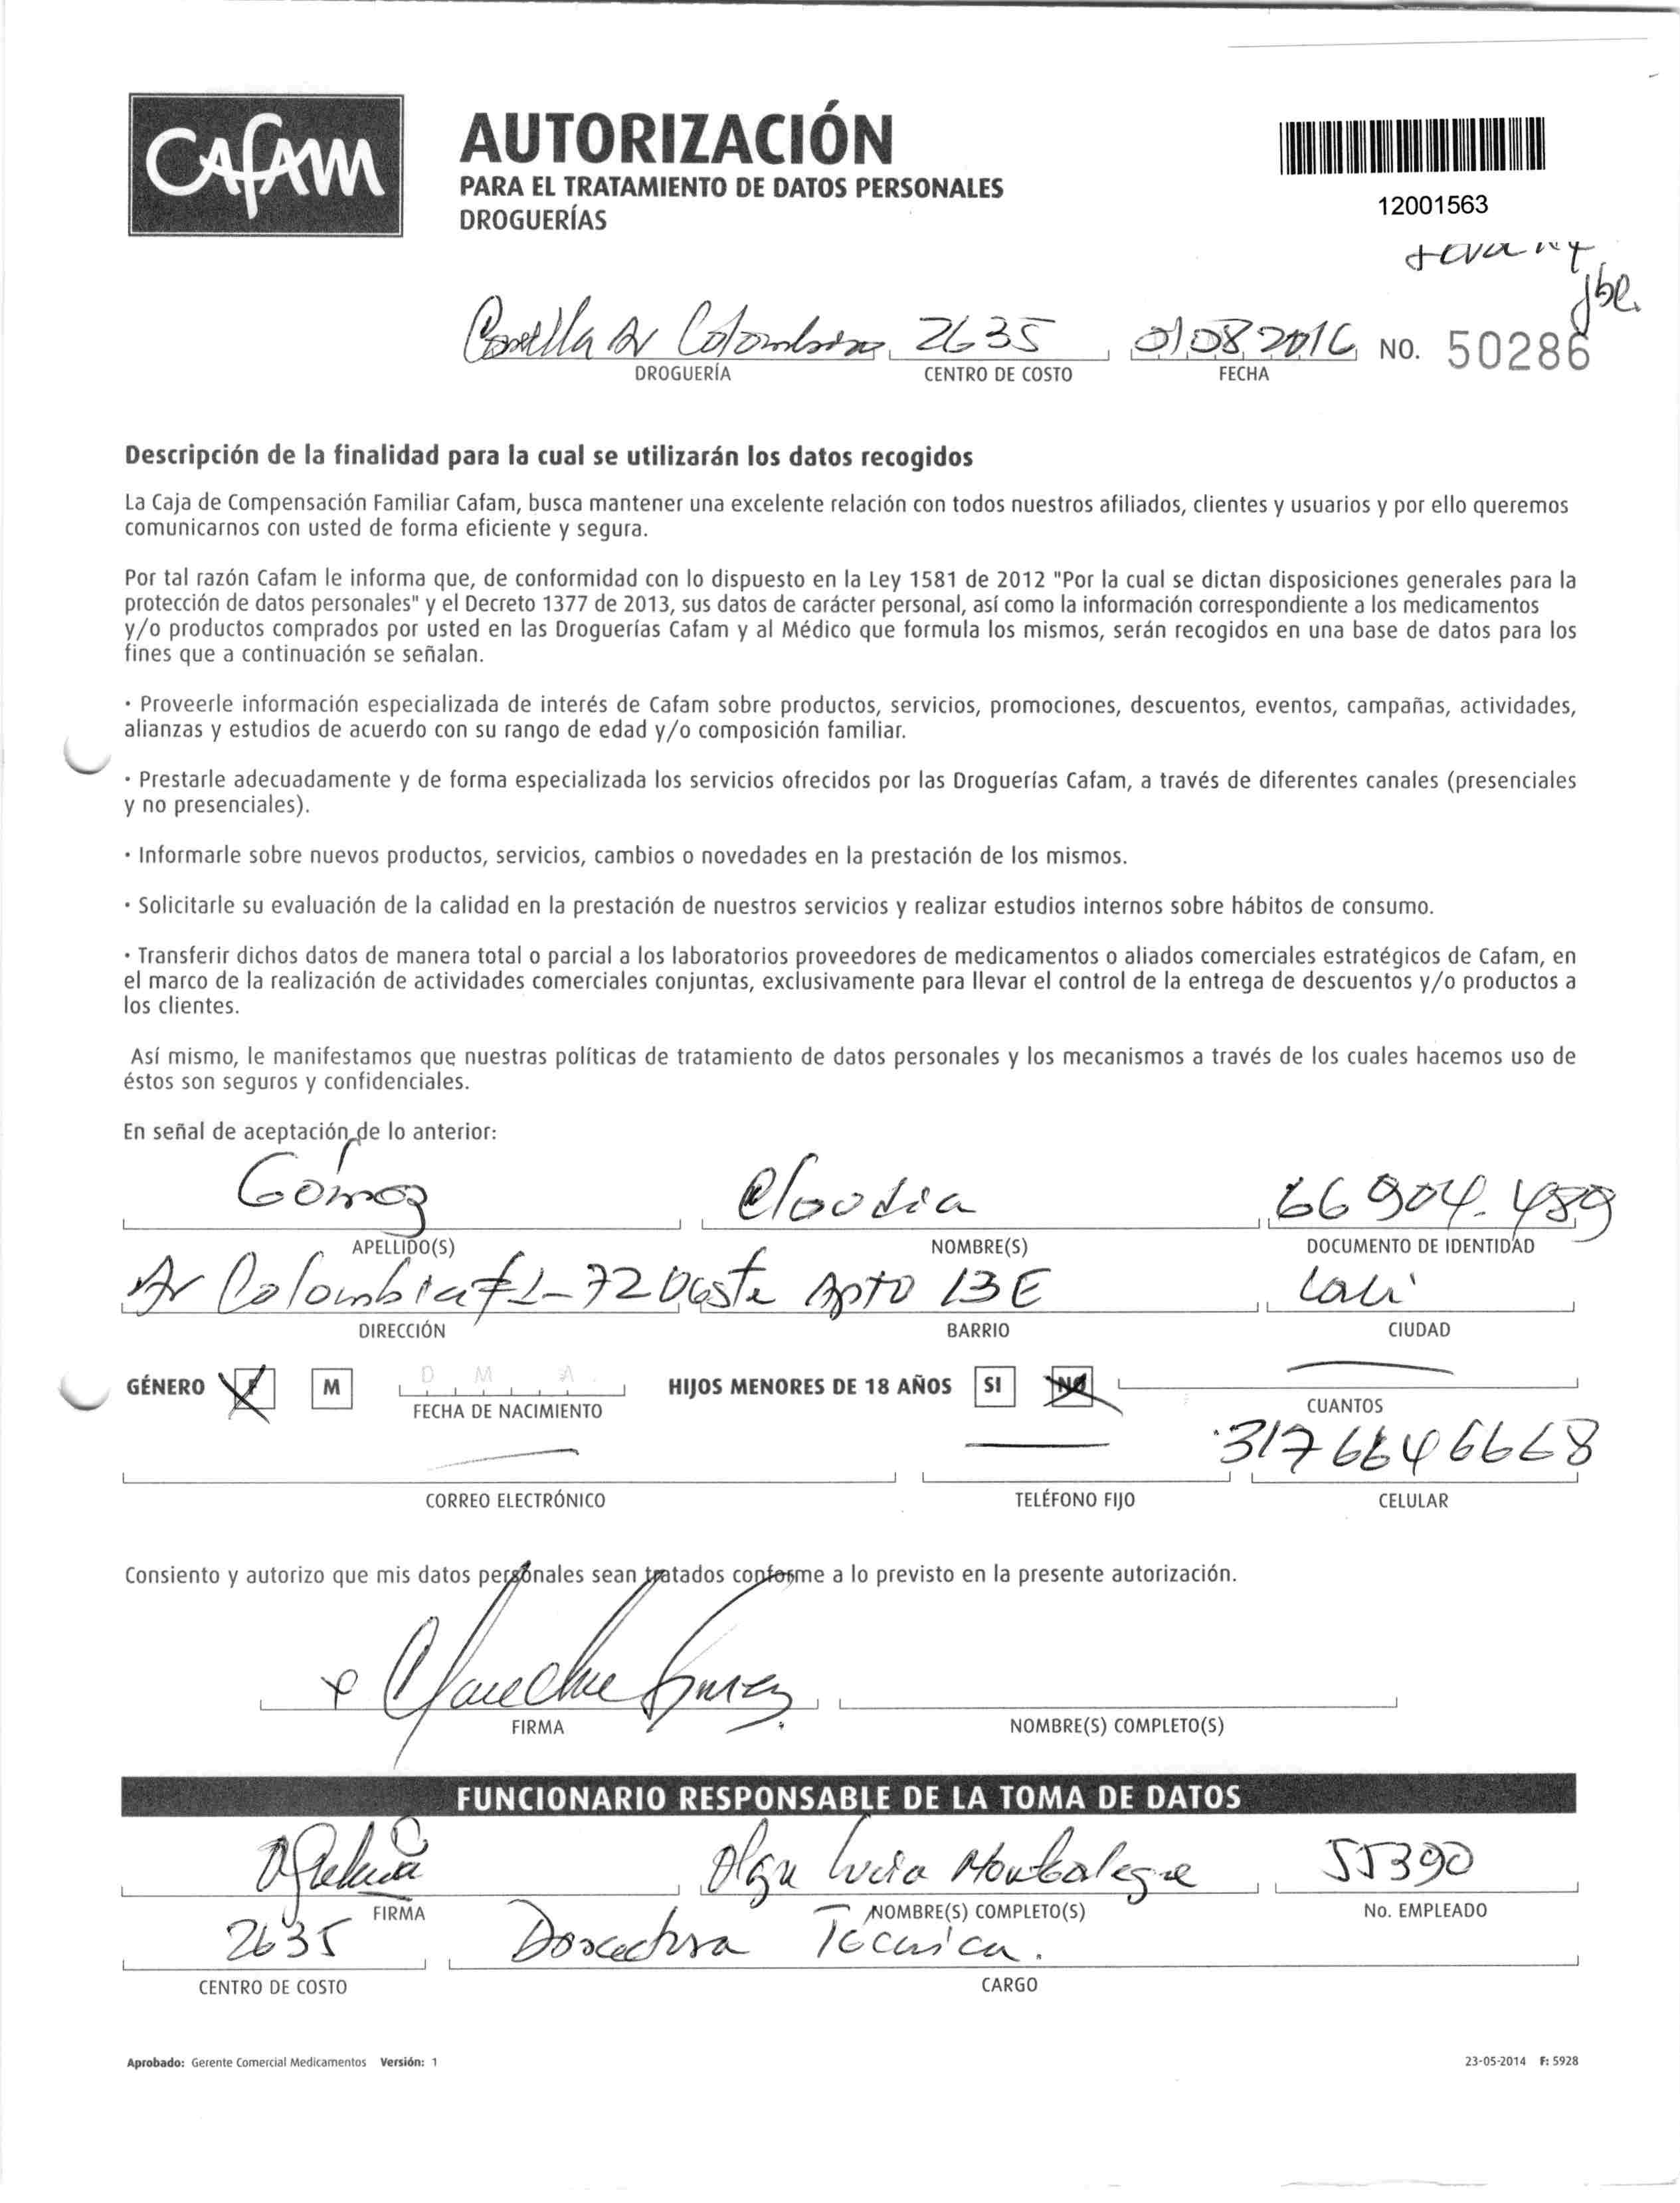 CAFAM
AUTORIZACIÓN
PARA EL TRATAMIENTO DE DATOS PERSONALES
DROGUERÍAS
12001563
Av Colombia 2635 01 08 2016 NO. 50286
DROGUERÍA CENTRO DE COSTO FECHA
Descripción de la finalidad para la cual se utilizarán los datos recogidos
La Caja de Compensación Familiar Cafam, busca mantener una excelente relación con todos nuestros afiliados, clientes y usuarios y por ello queremos
comunicarnos con usted de forma eficiente y segura.
Por tal razón Cafam le informa que, de conformidad con lo dispuesto en la Ley 1581 de 2012 "Por la cual se dictan disposiciones generales para la
protección de datos personales" y el Decreto 1377 de 2013, sus datos de carácter personal, así como la información correspondiente a los medicamentos
y/o productos comprados por usted en las Droguerías Cafam y al Médico que formula los mismos, serán recogidos en una base de datos para los
fines que a continuación se señalan.
· Proveerle información especializada de interés de Cafam sobre productos, servicios, promociones, descuentos, eventos, campañas, actividades,
alianzas y estudios de acuerdo con su rango de edad y/o composición familiar.
· Prestarle adecuadamente y de forma especializada los servicios ofrecidos por las Droguerías Cafam, a través de diferentes canales (presenciales
y no presenciales).
· Informarle sobre nuevos productos, servicios, cambios o novedades en la prestación de los mismos.
· Solicitarle su evaluación de la calidad en la prestación de nuestros servicios y realizar estudios internos sobre hábitos de consumo.
· Transferir dichos datos de manera total o parcial a los laboratorios proveedores de medicamentos o aliados comerciales estratégicos de Cafam, en
el marco de la realización de actividades comerciales conjuntas, exclusivamente para llevar el control de la entrega de descuentos y/o productos a
los clientes.
Así mismo, le manifestamos que nuestras políticas de tratamiento de datos personales y los mecanismos a través de los cuales hacemos uso de
éstos son seguros y confidenciales.
En señal de aceptación de lo anterior:
Gómez Claudia 66904.489
APELLIDO(S) NOMBRE(S) DOCUMENTO DE IDENTIDAD
Av Colombia #1-72 Oeste Apto 13E Cali
DIRECCIÓN BARRIO CIUDAD
GÉNERO F M D M A HIJOS MENORES DE 18 AÑOS SI NO
FECHA DE NACIMIENTO CUANTOS
3176646668
CORREO ELECTRÓNICO TELÉFONO FIJO CELULAR
Consiento y autorizo que mis datos personales sean tratados conforme a lo previsto en la presente autorización.
FIRMA NOMBRE(S) COMPLETO(S)
FUNCIONARIO RESPONSABLE DE LA TOMA DE DATOS
Olga Lucia Montealegre 55390
FIRMA NOMBRE(S) COMPLETO(S) No. EMPLEADO
2635 Tecnica.
CENTRO DE COSTO CARGO
Aprobado: Gerente Comercial Medicamentos Versión: 1 23-05-2014 F: 5928